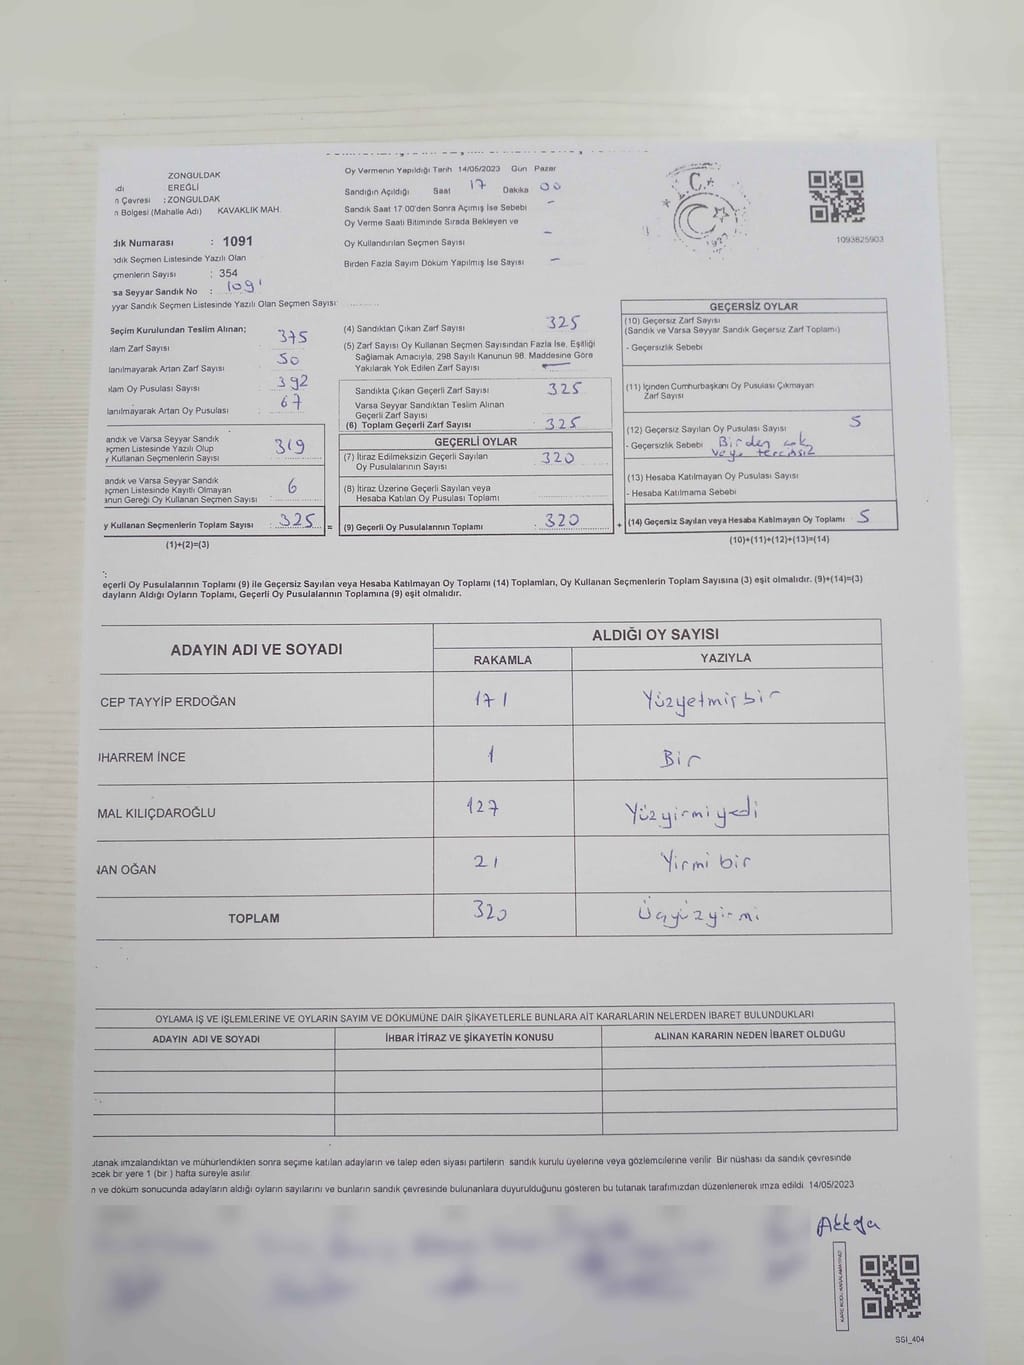 ZONGULDAK
EREĞLİ
n Çevresi : ZONGULDAK
n Bölgesi (Mahalle Adı) KAVAKLIK MAH.
dık Numarası : 1091
ndık Seçmen Listesinde Yazılı Olan
çmenlerin Sayısı : 354
sa Seyyar Sandık No : 1091
yyar Sandık Seçmen Listesinde Yazılı Olan Seçmen Sayısı
Oy Vermenin Yapıldığı Tarih 14/05/2023 Gün Pazar
Sandığın Açıldığı Saat 17 Dakika 00
Sandık Saat 17 00'den Sonra Açımış İse Sebebi -
Oy Verme Saati Bitiminde Sırada Bekleyen ve
Oy Kullandırılan Seçmen Sayısı -
Birden Fazla Sayım Döküm Yapılmış İse Sayısı -
T.C.
1093825903
Seçim Kurulundan Teslim Alınan;
plam Zarf Sayısı 375
lanılmayarak Artan Zarf Sayısı 50
plam Oy Pusulası Sayısı 392
lanılmayarak Artan Oy Pusulası 67
andık ve Varsa Seyyar Sandık
eçmen Listesinde Yazılı Olup
y Kullanan Seçmenlerin Sayısı 319
andık ve Varsa Seyyar Sandık
eçmen Listesinde Kayıtlı Olmayan
anun Gereği Oy Kullanan Seçmen Sayısı 6
y Kullanan Seçmenlerin Toplam Sayısı : 325 =
(1)+(2)=(3)
(4) Sandıktan Çıkan Zarf Sayısı 325
(5) Zarf Sayısı Oy Kullanan Seçmen Sayısından Fazla İse, Eşitliği
Sağlamak Amacıyla, 298 Sayılı Kanunun 98. Maddesine Göre
Yakılarak Yok Edilen Zarf Sayısı -
Sandıkta Çıkan Geçerli Zarf Sayısı 325
Varsa Seyyar Sandıktan Teslim Alınan
Geçerli Zarf Sayısı
(6) Toplam Geçerli Zarf Sayısı 325
GEÇERLİ OYLAR
(7) İtiraz Edilmeksizin Geçerli Sayılan
Oy Pusulalarının Sayısı 320
(8) İtiraz Üzerine Geçerli Sayılan veya
Hesaba Katılan Oy Pusulası Toplamı
(9) Geçerli Oy Pusulalarının Toplamı 320 +
GEÇERSİZ OYLAR
(10) Geçersiz Zarf Sayısı
(Sandık ve Varsa Seyyar Sandık Geçersiz Zarf Toplamı)
- Geçersizlik Sebebi
(11) İçinden Cumhurbaşkanı Oy Pusulası Çıkmayan
Zarf Sayısı
(12) Geçersiz Sayılan Oy Pusulası Sayısı 5
- Geçersizlik Sebebi Birden çok
veya tercihsiz
(13) Hesaba Katılmayan Oy Pusulası Sayısı
- Hesaba Katılmama Sebebi
(14) Geçersiz Sayılan veya Hesaba Katılmayan Oy Toplamı 5
(10)+(11)+(12)+(13)=(14)
eçerli Oy Pusulalarının Toplamı (9) ile Geçersiz Sayılan veya Hesaba Katılmayan Oy Toplamı (14) Toplamları, Oy Kullanan Seçmenlerin Toplam Sayısına (3) eşit olmalıdır. (9)+(14)=(3)
dayların Aldığı Oyların Toplamı, Geçerli Oy Pusulalarının Toplamına (9) eşit olmalıdır.
ADAYIN ADI VE SOYADI
ALDIĞI OY SAYISI
RAKAMLA YAZIYLA
CEP TAYYİP ERDOĞAN 171 Yüzyetmişbir
HARREM İNCE 1 Bir
MAL KILIÇDAROĞLU 127 Yüzyirmiyedi
NAN OĞAN 21 Yirmi bir
TOPLAM 320 Üçyüzyirmi
OYLAMA İŞ VE İŞLEMLERİNE VE OYLARIN SAYIM VE DÖKÜMÜNE DAİR ŞİKAYETLERLE BUNLARA AİT KARARLARIN NELERDEN İBARET BULUNDUKLARI
ADAYIN ADI VE SOYADI İHBAR İTİRAZ VE ŞİKAYETİN KONUSU ALINAN KARARIN NEDEN İBARET OLDUĞU
utanak imzalandıktan ve mühürlendikten sonra seçime katılan adayların ve talep eden siyasi partilerin sandık kurulu üyelerine veya gözlemcilerine verilir Bir nüshası da sandık çevresinde
ecek bir yere 1 (bir ) hafta süreyle asılır
n ve döküm sonucunda adayların aldığı oyların sayılarını ve bunların sandık çevresinde bulunanlara duyurulduğunu gösteren bu tutanak tarafımızdan düzenlenerek imza edildi 14/05/2023
KARE KODU KARALAMAYINIZ!
SSI_404